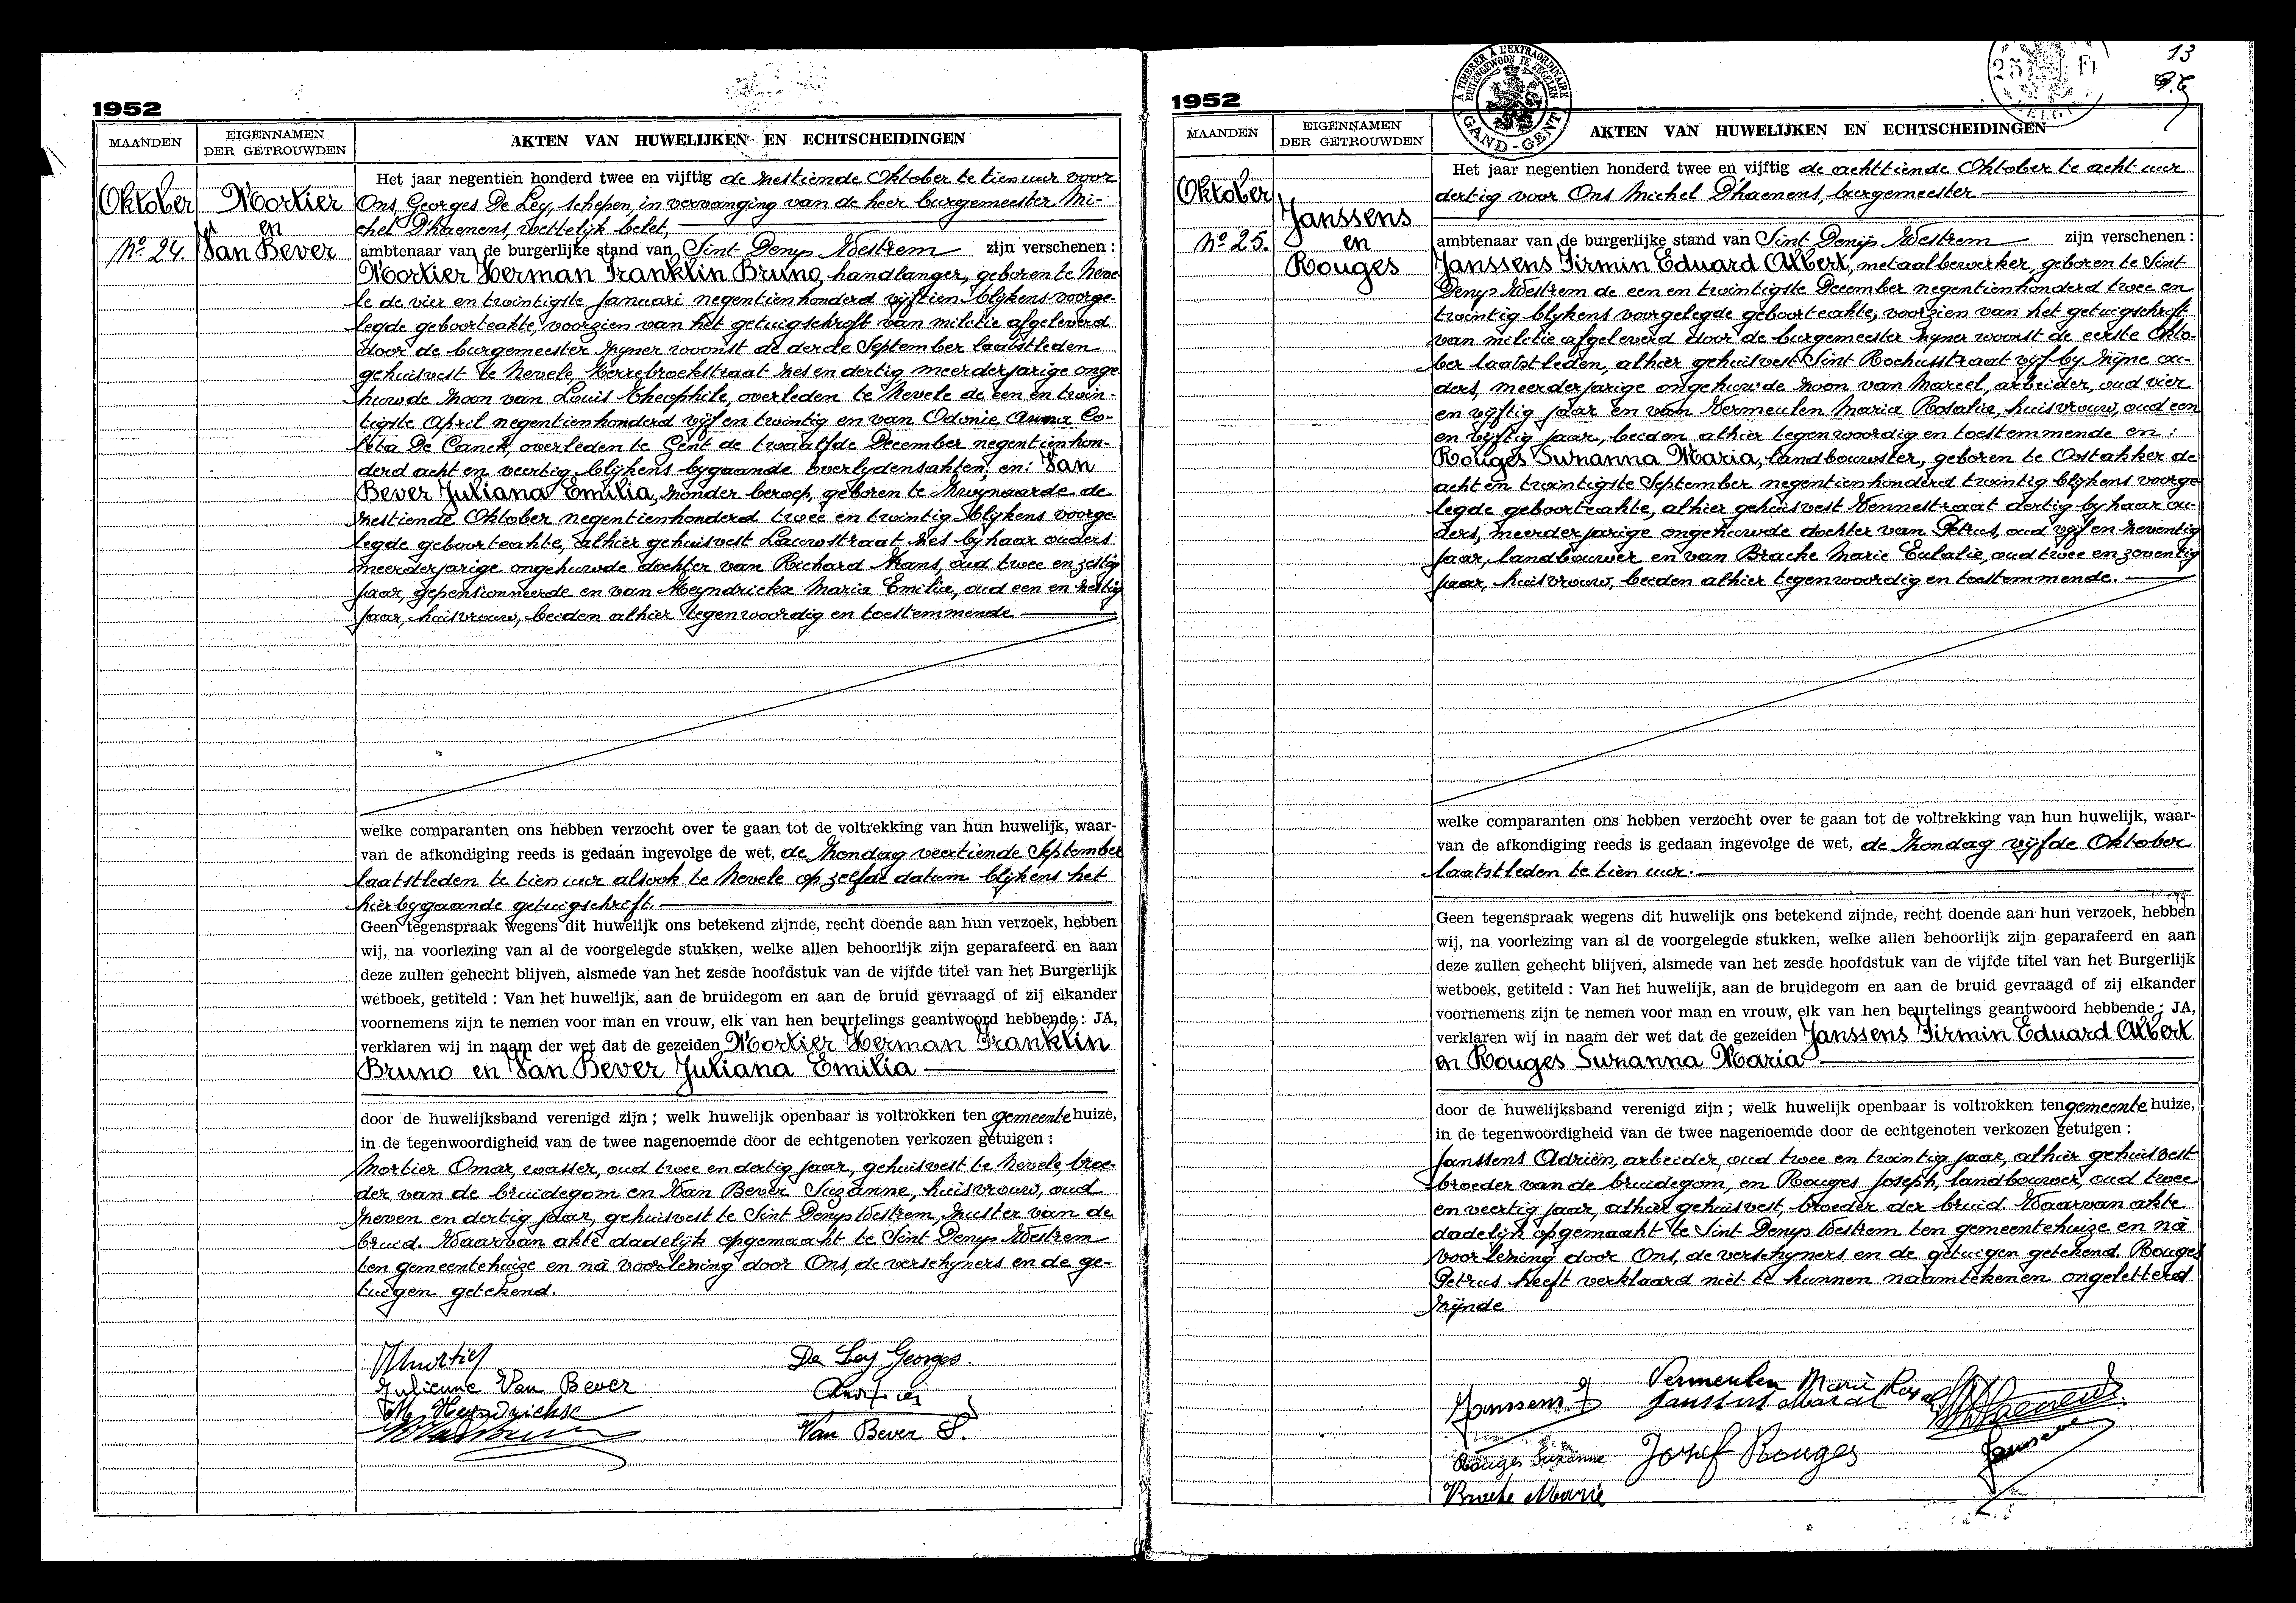 1952
MAANDEN
EIGENNAMEN
DER GETROUWDEN
AKTEN VAN HUWELIJKEN EN ECHTSCHEIDINGEN
Oktober
No 24.
Mortier
en
Van Bever
Het jaar negentien honderd twee en vijftig de zestiende Oktober te tien uur voor
Ons, Georges De Ley, schepen, in vervanging van de heer burgemeester Mi-
chel Dhaenens, wettelijk belet,
ambtenaar van de burgerlijke stand van Sint Denijs Westrem zijn verschenen :
Mortier Herman Franklin Bruno, handlanger, geboren te Neve
le de vier en twintigste Januari negentienhonderd vijftien blijkens voorge-
legde geboorteakte, voorzien van het getuigschrift van militie afgeleverd
door de burgemeester zijner woonst de derde September laatstleden
gehuisvest te Nevele, straat zes en dertig, meerderjarige onge
huwde zoon van Louis Theophile, overleden te Nevele de een en twin-
tigste April negentienhonderd vijf en twintig en van Odonie Anna Co-
leta De Canck, overleden te Gent de twaalfde December negentienhon-
derd acht en veertig blijkens bygaande overlydensakten, en: Van
Bever Juliana Emilia, zonder beroep, geboren te Zwijnaarde de
zestiende Oktober negentienhonderd twee en twintig blijkens voorge-
legde geboorteakte, alhier gehuisvest Lauwstraat zes bij haar ouders
meerderjarige ongehuwde dochter van Richard Frans, oud twee en zestig
jaar, gepensionneerde en van Heyndrickx Maria Emilia, oud een en zestig
jaar, huisvrouw, beiden alhier tegenwoordig en toestemmende
welke comparanten ons hebben verzocht over te gaan tot de voltrekking van hun huwelijk, waar-
van de afkondiging reeds is gedaan ingevolge de wet, de Zondag veertiende September
laatstleden te tien uur alsook te Nevele op zelfde datum blijkens het
hierbygaande getuigschrift.
Geen tegenspraak wegens dit huwelijk ons betekend zijnde, recht doende aan hun verzoek, hebben
wij, na voorlezing van al de voorgelegde stukken, welke allen behoorlijk zijn geparafeerd en aan
deze zullen gehecht blijven, alsmede van het zesde hoofdstuk van de vijfde titel van het Burgerlijk
wetboek, getiteld : Van het huwelijk, aan de bruidegom en aan de bruid gevraagd of zij elkander
voornemens zijn te nemen voor man en vrouw, elk van hen beurtelings geantwoord hebbende : JA,
verklaren wij in naam der wet dat de gezeiden Mortier Herman Franklin
Bruno en Van Bever Juliana Emilia
door de huwelijksband verenigd zijn ; welk huwelijk openbaar is voltrokken ten gemeente huize,
in de tegenwoordigheid van de twee nagenoemde door de echtgenoten verkozen getuigen :
Mortier Omar, wasser, oud twee en dertig jaar, gehuisvest te Nevele, broe-
der van de bruidegom en Van Bever Suzanne, huisvrouw, oud
zeven en dertig jaar, gehuisvest te Sint Denijs Westrem, zuster van de
bruid. Waarvan akte dadelijk opgemaakt te Sint Denijs Westrem
ten gemeentehuize en nà voorlezing door Ons, de verschijners en de ge-
tuigen getekend.
HMortier
De Ley Georges.
Julienne Van Bever
M. Heyndrickx
Van Bever S.
1952
A TIMBRER A L'EXTRAORDINAIRE
BUITENGEWOON TE ZEGELEN
GAND-GENT
25 Fr
13
MAANDEN
EIGENNAMEN
DER GETROUWDEN
AKTEN VAN HUWELIJKEN EN ECHTSCHEIDINGEN
Oktober
No 25.
Janssens
en
Rouges
Het jaar negentien honderd twee en vijftig de achttiende Oktober te acht uur
dertig voor Ons Michel Dhaenens, burgemeester
ambtenaar van de burgerlijke stand van Sint Denijs Westrem zijn verschenen :
Janssens Firmin Eduard Albert, metaalbewerker, geboren te Sint
Denijs Westrem de een en twintigste December negentienhonderd twee en
twintig blijkens voorgelegde geboorteakte, voorzien van het getuigschrift
van militie afgeleverd door de burgemeester zijner woonst de eerste Okto-
ber laatstleden, alhier gehuisvest Sint Rochusstraat vijf by zijne ou-
ders, meerderjarige ongehuwde zoon van Marcel, arbeider, oud vier
en vijftig jaar en van Vermeulen Maria Rosalia, huisvrouw, oud een
en vijftig jaar, beiden alhier tegenwoordig en toestemmende en :
Rouges Suzanna Maria, landbouwster, geboren te Oostakker de
acht en twintigste September negentienhonderd twintig blijkens voorge
legde geboorteakte, alhier gehuisvest Vennestraat dertig by haar ou-
ders, meerderjarige ongehuwde dochter van Petrus, oud vijf en zeventig
jaar, landbouwer en van Bracke Marie Eulalie, oud twee en zeventig
jaar, huisvrouw, beiden alhier tegenwoordig en toestemmende.
welke comparanten ons hebben verzocht over te gaan tot de voltrekking van hun huwelijk, waar-
van de afkondiging reeds is gedaan ingevolge de wet, de Zondag vijfde Oktober
laatstleden te tien uur.
Geen tegenspraak wegens dit huwelijk ons betekend zijnde, recht doende aan hun verzoek, hebben
wij, na voorlezing van al de voorgelegde stukken, welke allen behoorlijk zijn geparafeerd en aan
deze zullen gehecht blijven, alsmede van het zesde hoofdstuk van de vijfde titel van het Burgerlijk
wetboek, getiteld : Van het huwelijk, aan de bruidegom en aan de bruid gevraagd of zij elkander
voornemens zijn te nemen voor man en vrouw, elk van hen beurtelings geantwoord hebbende : JA,
verklaren wij in naam der wet dat de gezeiden Janssens Firmin Eduard Albert
en Rouges Suzanna Maria
door de huwelijksband verenigd zijn ; welk huwelijk openbaar is voltrokken ten gemeente huize,
in de tegenwoordigheid van de twee nagenoemde door de echtgenoten verkozen getuigen :
Janssens Adriën, arbeider, oud twee en twintig jaar, alhier gehuisvest
broeder van de bruidegom, en Rouges Joseph, landbouwer, oud twee
en veertig jaar, alhier gehuisvest, broeder der bruid. Waarvan akte
dadelijk opgemaakt te Sint Denijs Westrem ten gemeentehuize en nà
voorlezing door Ons, de verschijners en de getuigen getekend. Rouges
Petrus heeft verklaard niet te kunnen naamtekenen ongeletterd
zijnde
Janssens F
Vermeulen Marie Rosa
Janssens Marcel
Rouges Suzanne
Jozef Rouges
Janssens
Bracke Marie